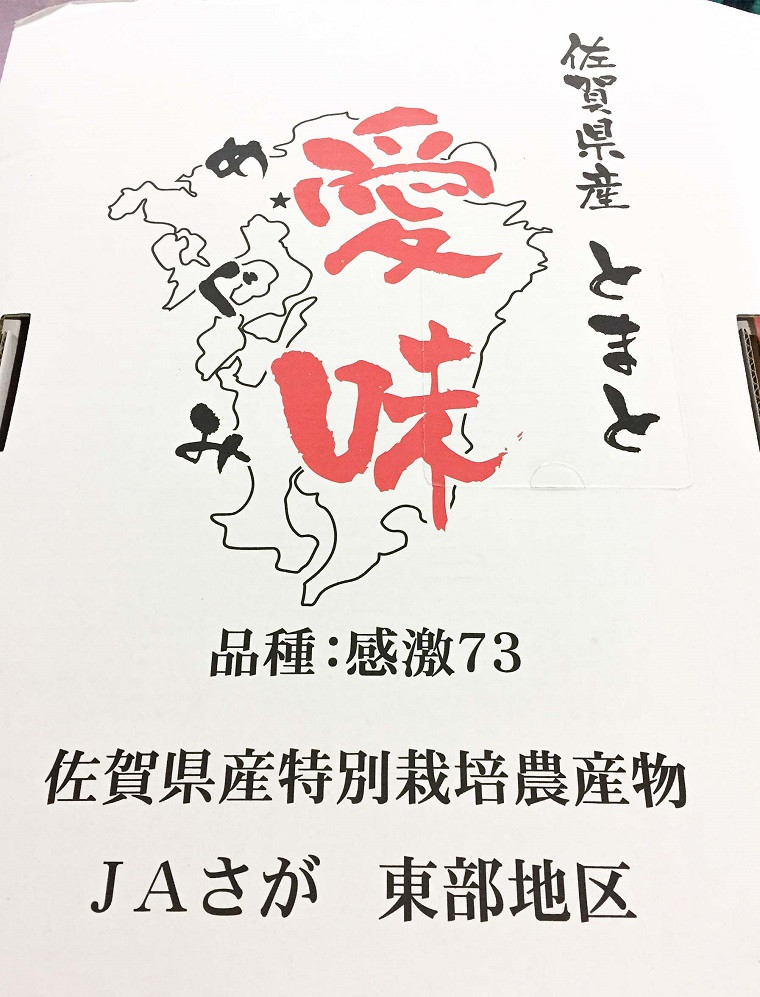 佐賀県産 とまと
愛味
めぐみ
品種：感激73
佐賀県産特別栽培農産物
JAさが 東部地区